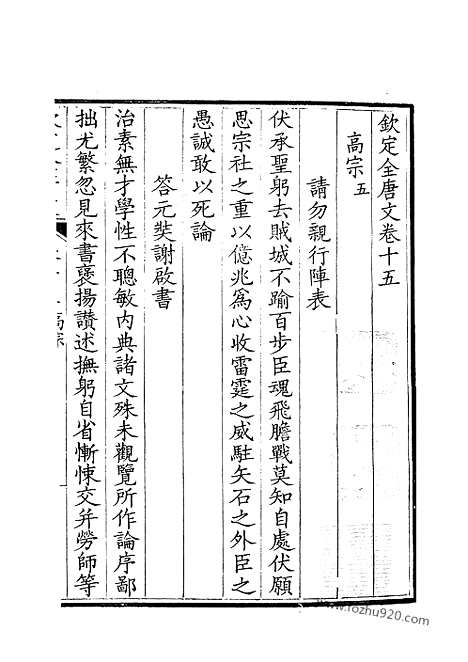 欽定全唐文卷十五
高宗五
請勿親行陣表
伏承聖躬去賊城不踰百步臣魂飛膽戰莫知自處伏願
思宗社之重以億兆爲心收雷霆之威駐矢石之外臣之
愚誠敢以死論
答元奘謝啟書
治素無才學性不聰敏內典諸文殊未觀覽所作論序鄙
拙尤繁忽見來書褒揚讚述撫躬自省慚悚交并勞師等
www.fozhu920.com